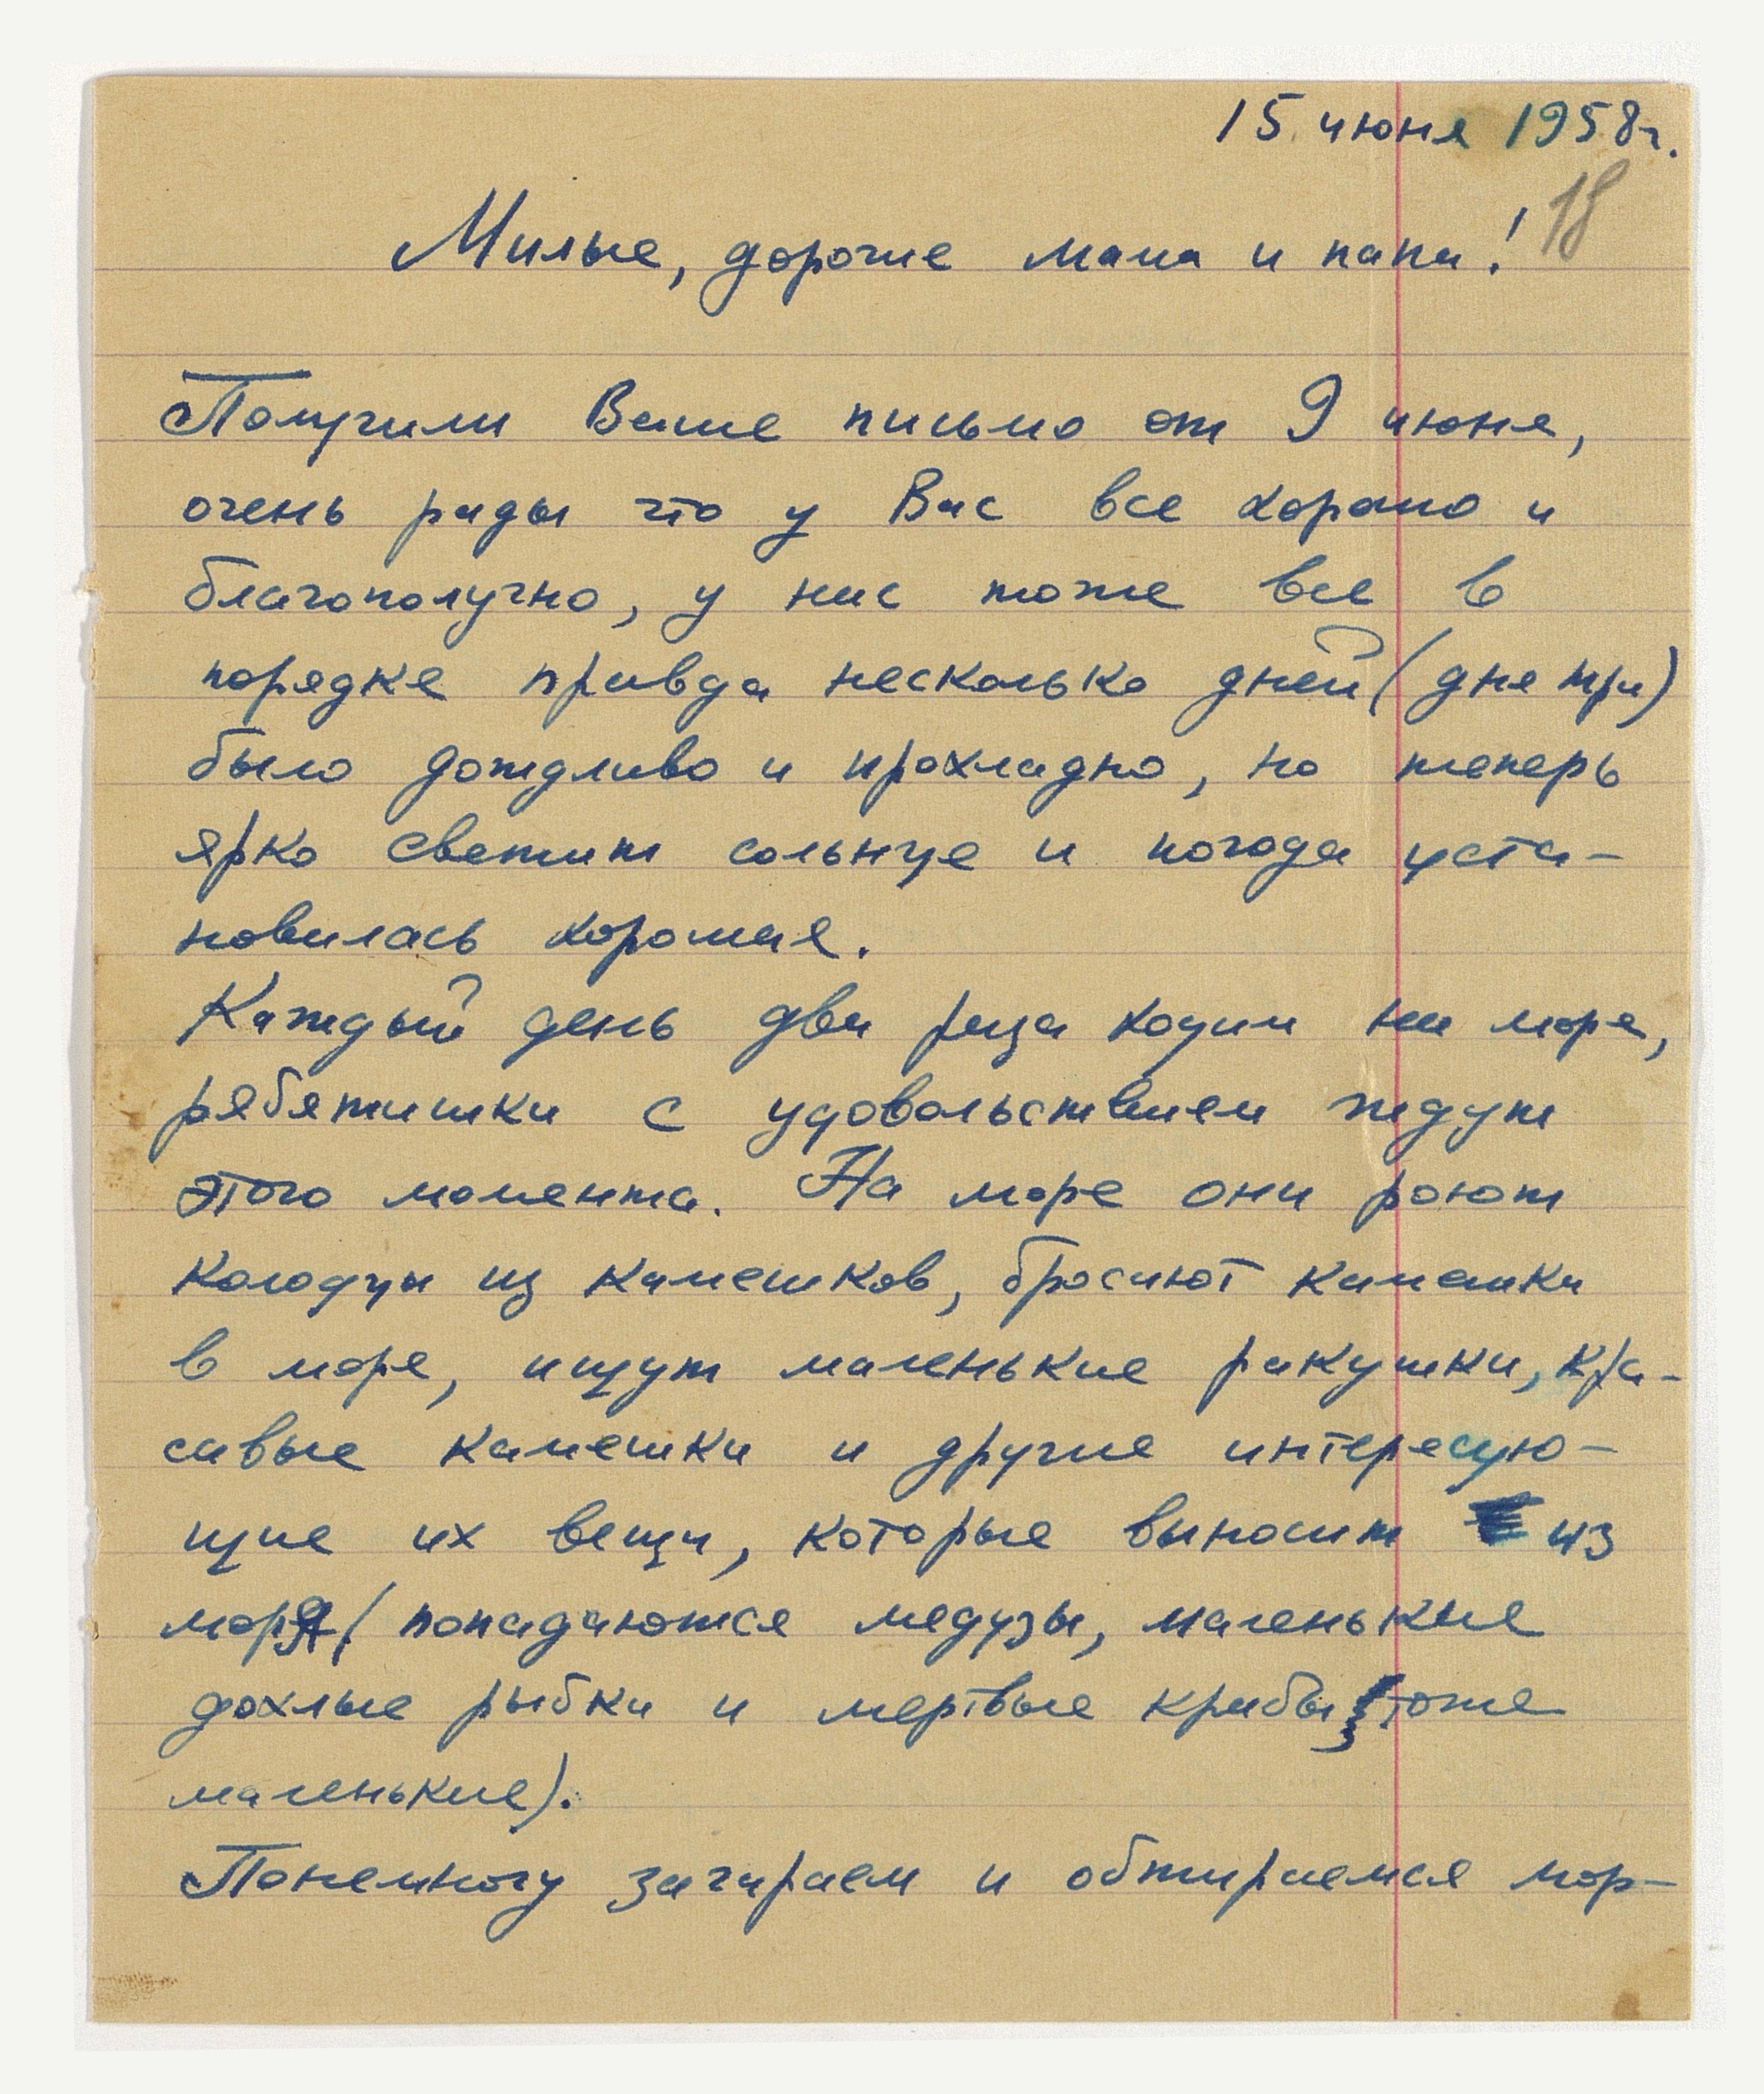 15 июня 1958г.
18
Милые, дорогие мама и папа!
Получили Ваше письмо от 9 июня,
очень рады что у Вас все хорошо и
благополучно, у нас тоже все в
порядке правда несколько дней (дня три)
было дождливо и прохладно, но теперь
ярко светит сольнце и погода уста-
новилась хорошая.
Каждый день два раза ходим на море,
рябятишки с удовольствием ждут
этого момента. На море они роют
колодцы из камешков, бросают камешки
в море, ищут маленькие ракушки, кра-
сивые камешки и другие интересую-
щие их вещи, которые выносит из
моря (попадаются медузы, маленькие
дохлые рыбки и мертвые крабы тоже
маленькие).
Понемногу загораем и обтираемся мор-